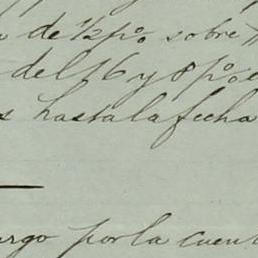 de ½ pº sobre
del 16 y 8 pº
s hasta la fecha
argo por la cuent